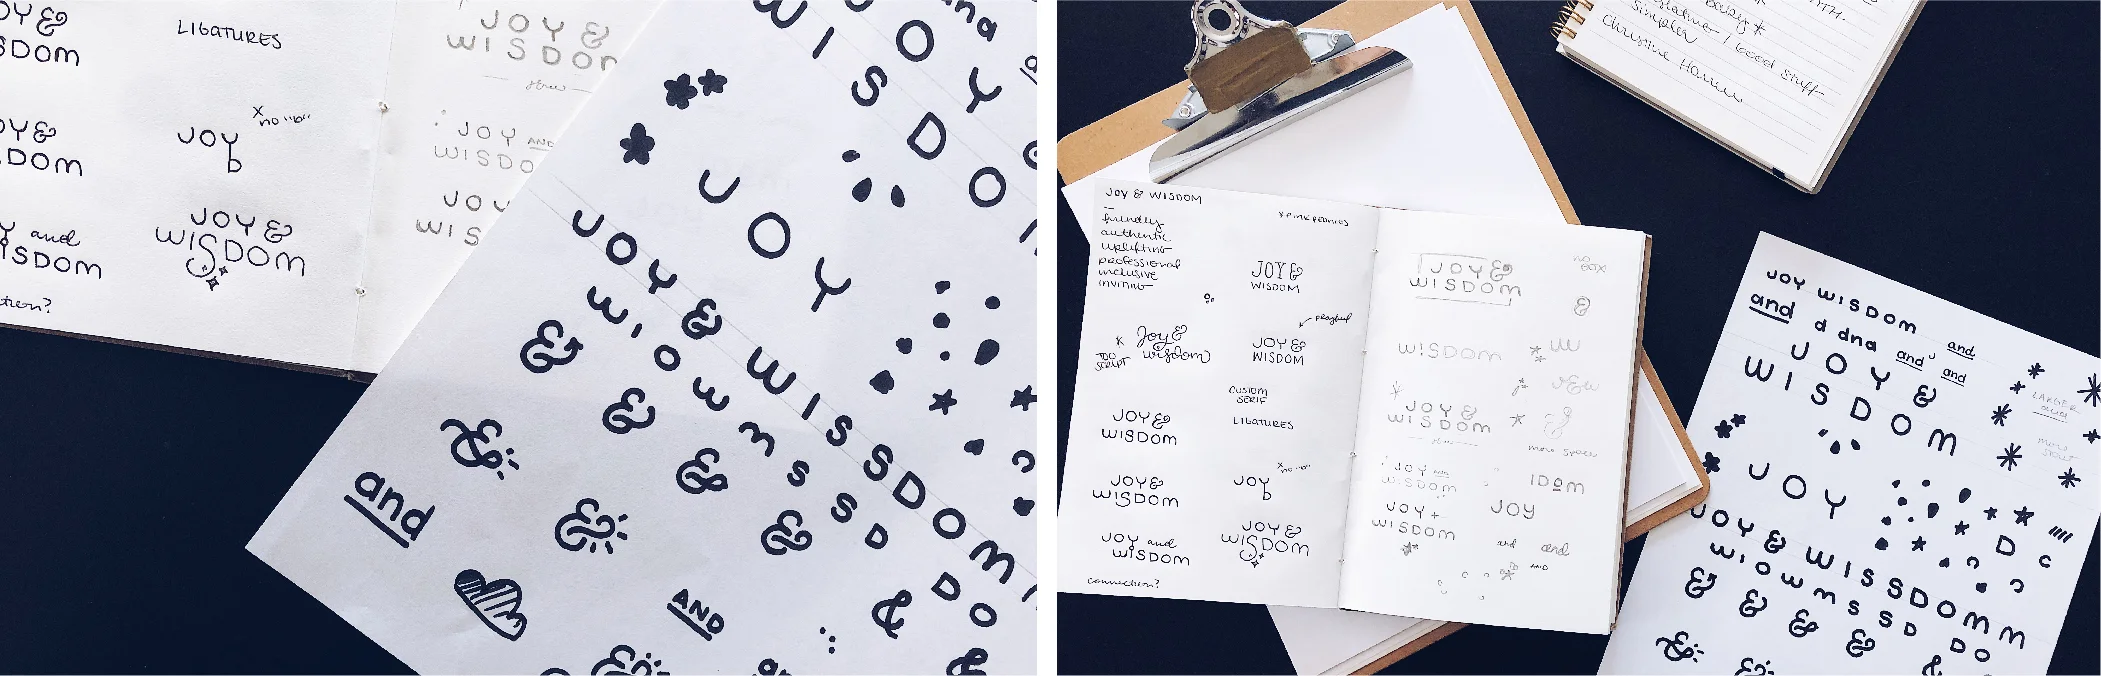 JOY &
WISDOM
LIGATURES
JOY &
WISDOM
JOY &
WISDOM
JOY
x no "b"
JOY AND
WISDO
and
WISDOM
JOY &
WISDOM
JOY
WIS
and
JOY &
WISDOM
JOY
JOY & WISSDOMM
WIOWMSSD DO
& & & & &
& &
and
AND
Good Stuff
simpler
Christine
JOY & WISDOM
friendly
authentic
uplifting
professional
inclusive
inviting
* PINK PEONIES
JOY &
WISDOM
playful
Joy &
wisdom
* TOO
SCRIPT
JOY &
WISDOM
CUSTOM
SERIF
JOY &
WISDOM
LIGATURES
JOY &
WISDOM
JOY
x no "b"
JOY and
WISDOM
JOY &
WISDOM
connection?
JOY &
WISDOM
NO
BOX
&
WISDOM
W
JOY &
WISDOM
more space
JOY AND
WISDOM
IDOM
JOY +
WISDOM
JOY
and and
AND
JOY WISDOM
and d dna and and
and
JOY &
WISDOM
LARGER
JOY
D C
JOY & WISSDOMM
WIOWMSSD DO
& & & & &
& &